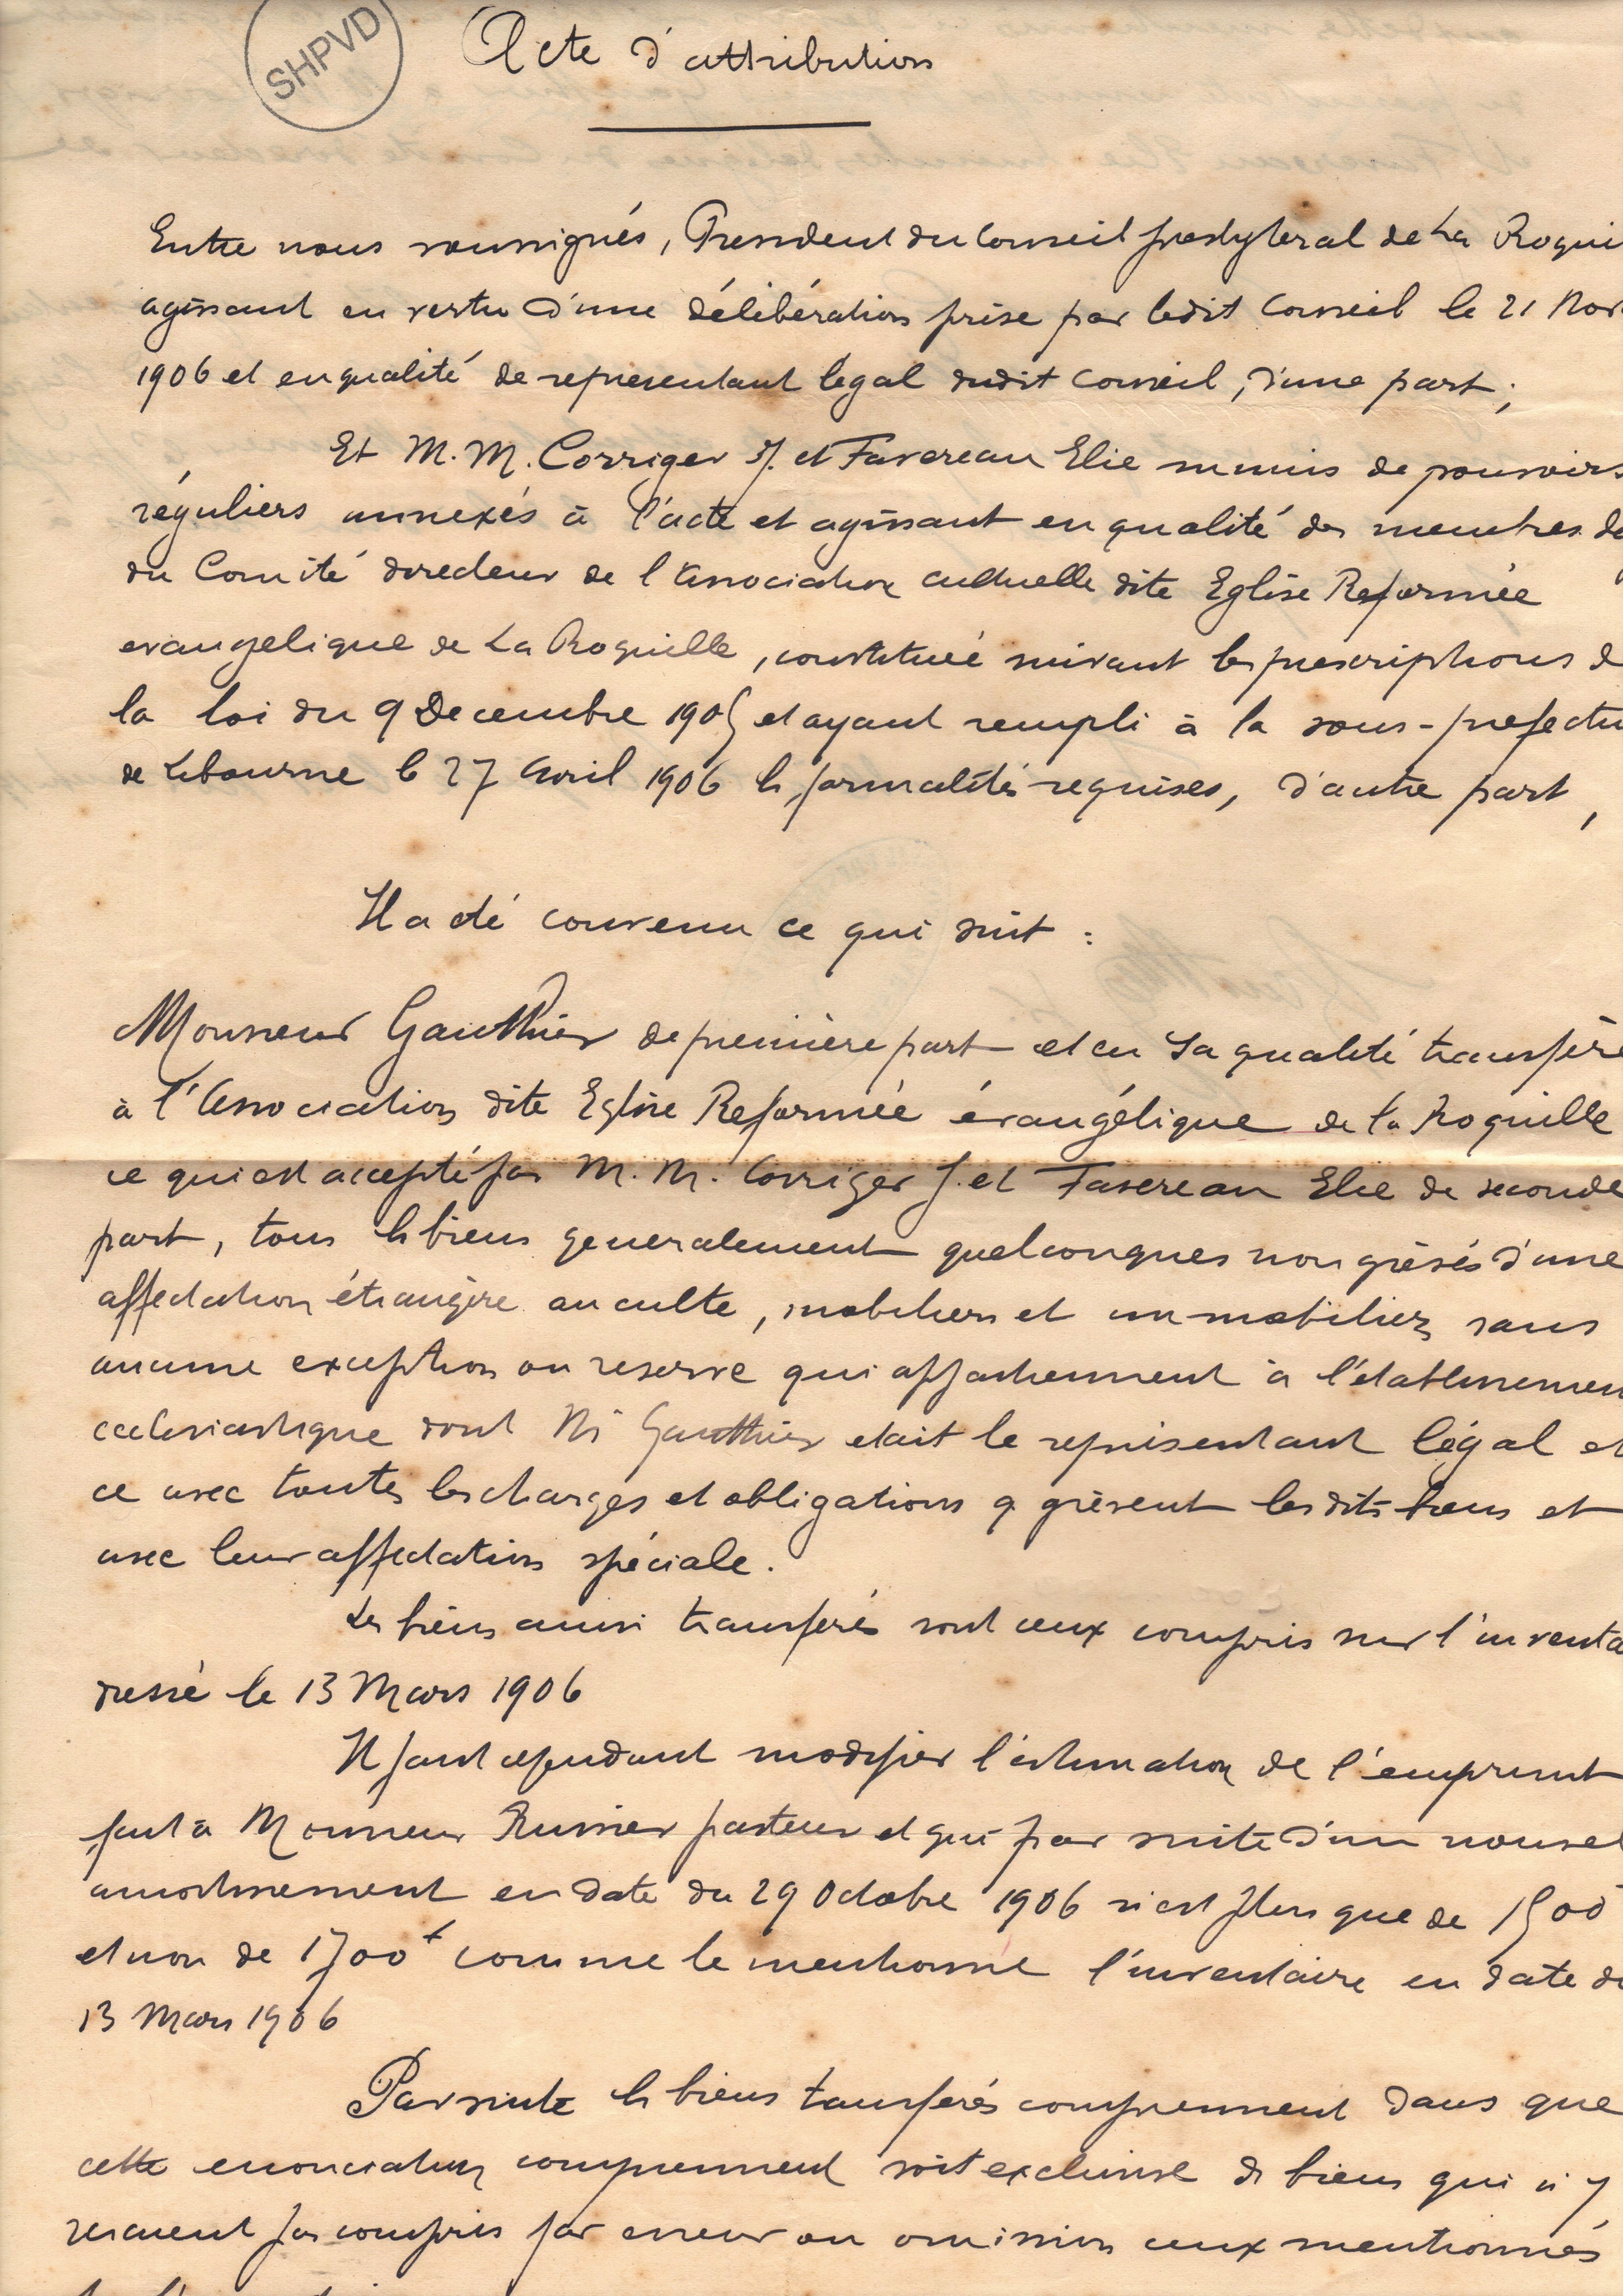 SHPVD
Acte d'attribution
Entre nous soussignés, President du Conseil presbyteral de La Roqui
agissant en vertu d'une délibération prise par ledit Conseil le 21 Nov
1906 et en qualité de representant légal dudit Conseil, d'une part;
Et M. M. Corriger J. et Favereau Elie munis de pouvoirs
réguliers annexés à l'acte et agissant en qualité de membres de
du Comité directeur de l'association cultuelle dite Eglise Reformée
evangelique de La Roquille, constituée suivant les prescriptions d
la loi du 9 Decembre 1905 et ayant rempli à la sous-prefectu
de Libourne le 27 Avril 1906 les formalités requises, d'autre part,
Il a été convenu ce qui suit :
Monsieur Gauthier de première part et en sa qualité transfère
à l'Association dite Eglise Reformée évangélique de La Roquille
ce qui est accepté par M. M. Corriger J. et Favereau Elie de seconde
part, tous les biens generalement quelconques non grévés d'une
affectation étrangère au culte, mobiliers et immobiliers sans
aucune exception ou reserve qui appartiennent à l'établissemen
ecclesiastique dont Mr Gauthier etait le représentant légal et
ce avec toutes les charges et obligations q grèvent les dits biens et
avec leur affectation spéciale.
Les biens ainsi transferés sont ceux compris sur l'inventa
dressé le 13 Mars 1906
Il faut cependant modifier l'estimation de l'emprunt
fait à Monsieur pasteur et qui par suite d'un nouvel
amortissement en date du 29 Octobre 1906 n'est plus que de 1500
et non de 1700f comme le mentionne l'inventaire en date du
13 Mars 1906
Par suite les biens transférés comprennent sans que
cette enonciation comprennent soit exclusive de biens qui n'y
seraient pas compris par erreur ou omission ceux mentionnés